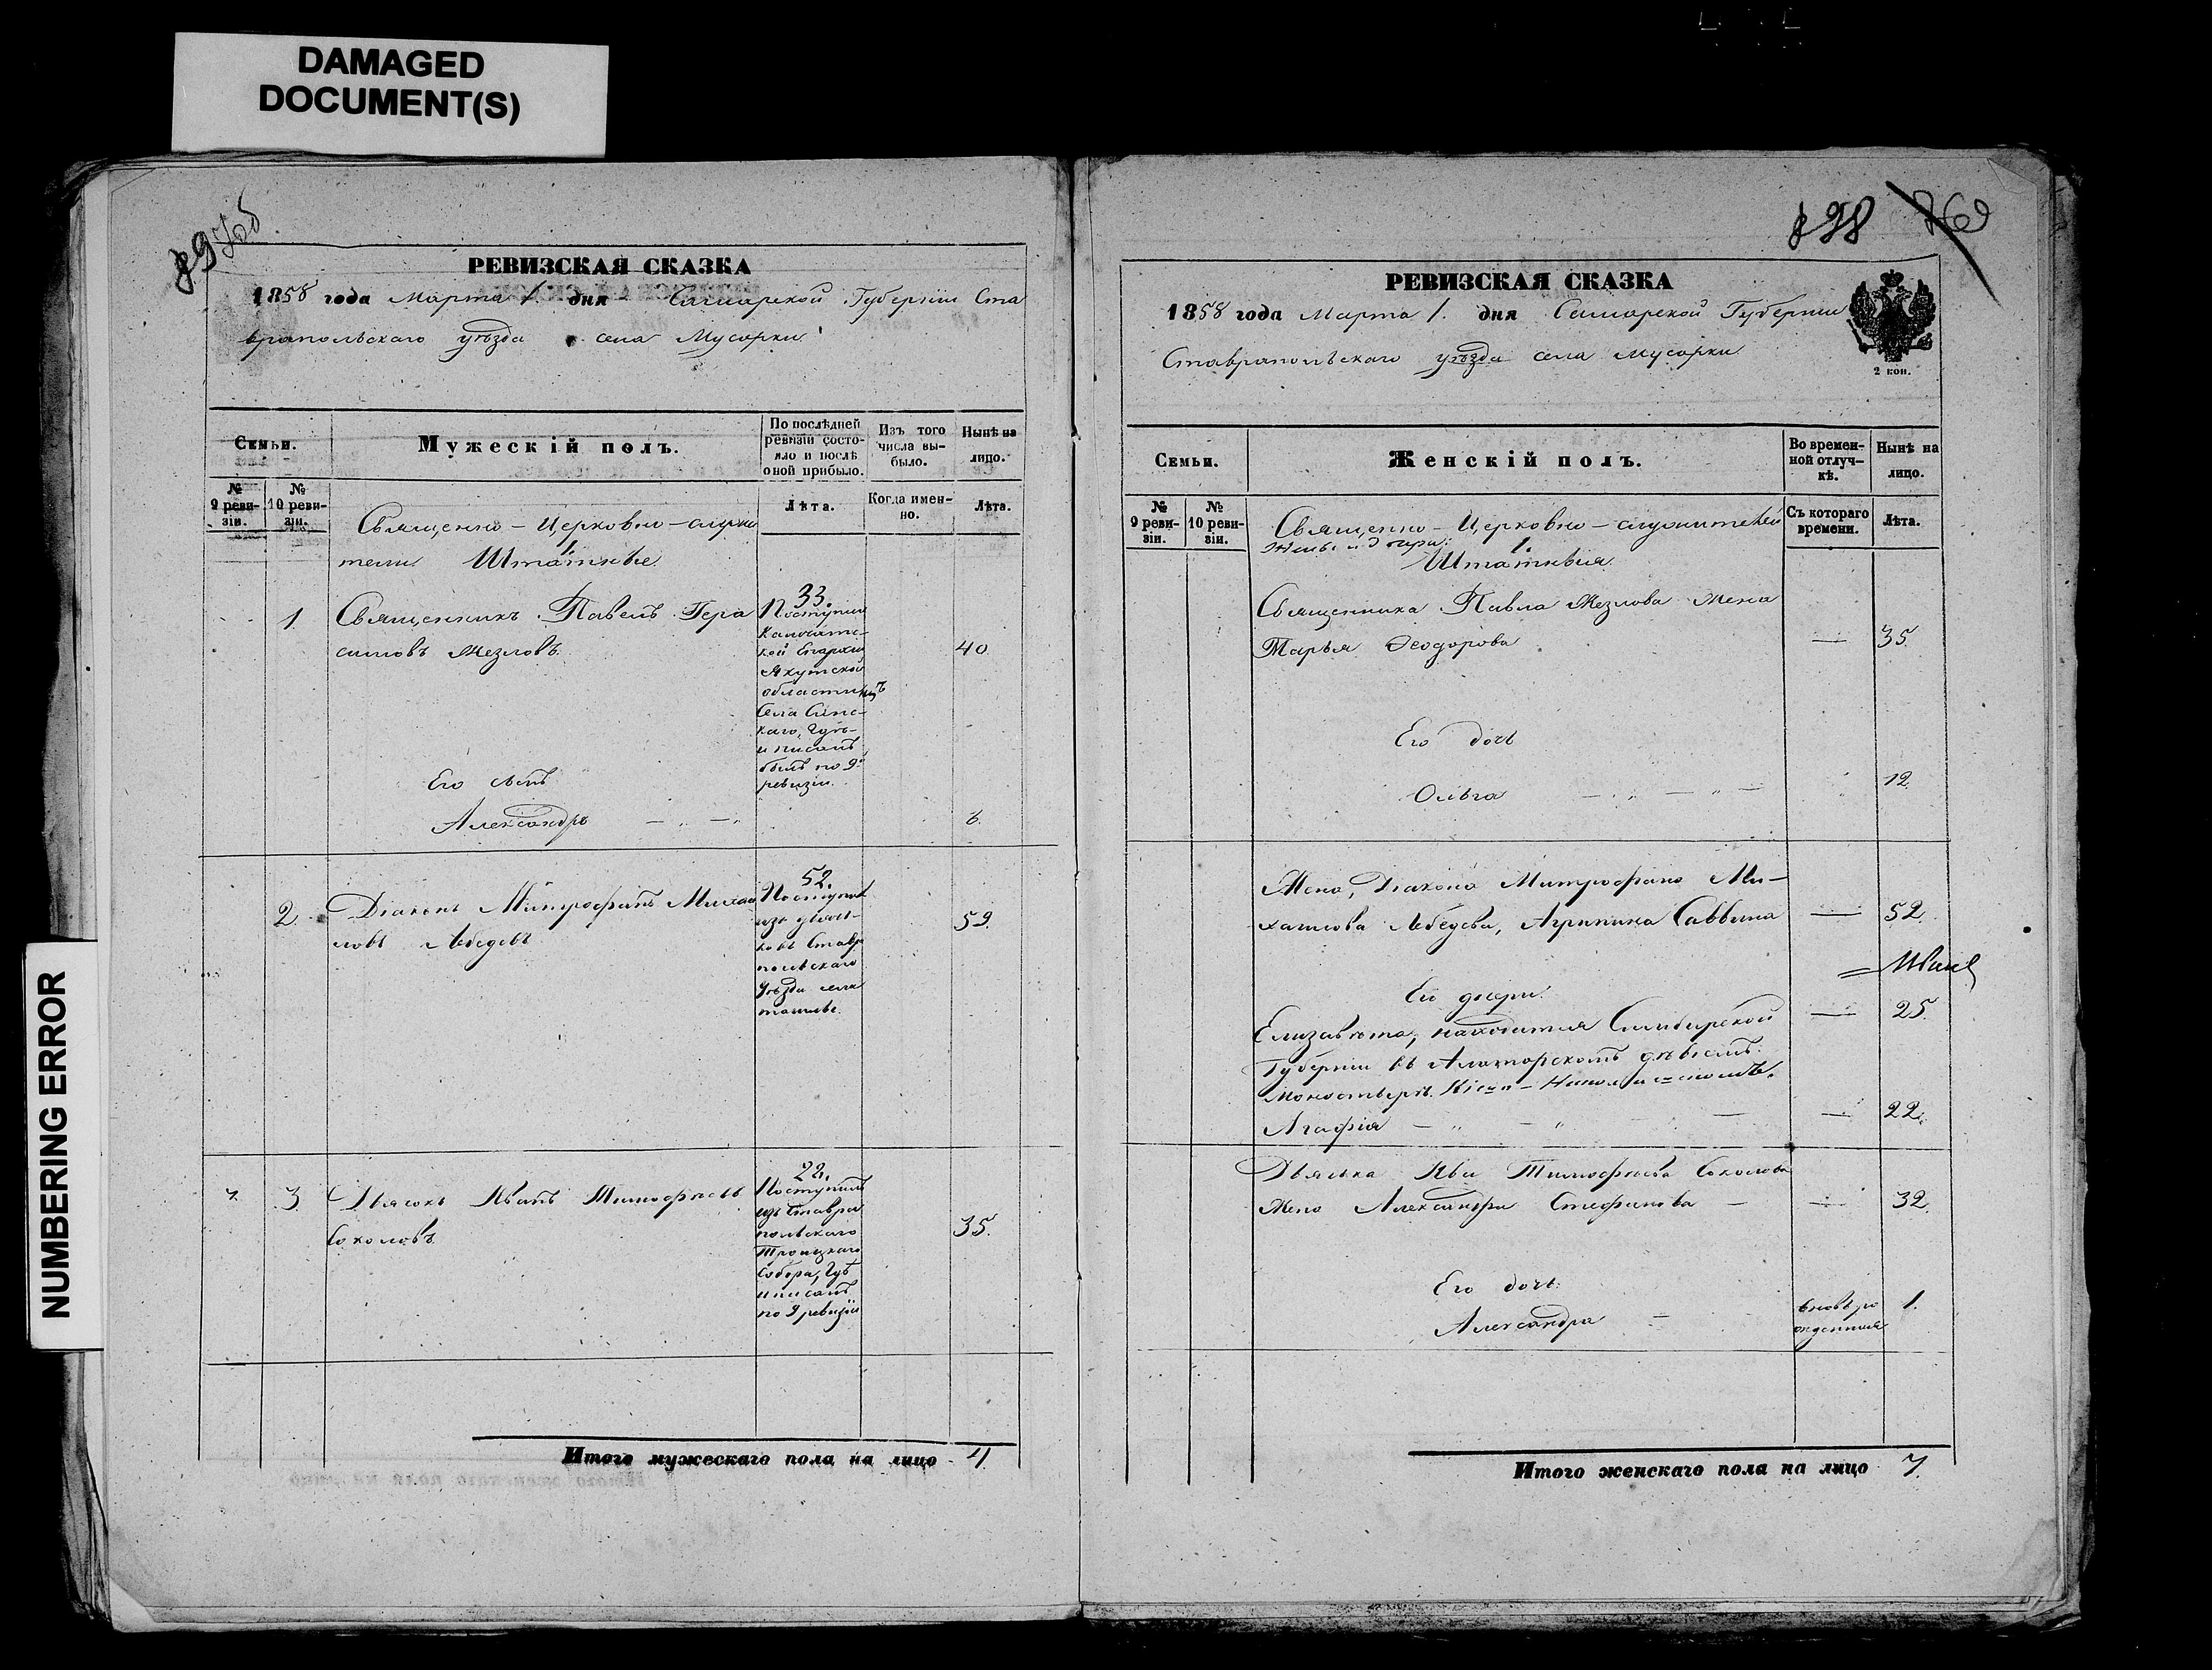 DAMAGED
DOCUMENT(S)
NUMBERING ERROR
РЕВИЗСКАЯ СКАЗКА
1858 года Марта 1. дня Самарской Губернiи Ста
вропольскаго уѣзда села Мусорки
Семьи.
Мужескiй полъ.
По послѣдней
ревизiи состо-
яло и послѣ
оной прибыло.
Изъ того
числа вы-
было.
Нынѣ на
лицо.
№
9 реви-
зiи.
№
10 реви-
зiи.
Лѣта.
Когда имен-
но.
Лѣта.
Священно-Церковно-служи
тели Штатные
1.
1. Священникъ Павелъ Гера
симовъ Мезловъ
33.
Поступил
Камчатс-
кой Епархiи
Якутской
области изъ
Села
каго, гдѣ-
и писанъ
былъ по 9й
ревизiи.
40
Его сынъ
Александръ
6.
2. Дiаконъ Митрофанъ Михаи
ловъ Лебедевъ
52.
Поступил
изъ
Ставро
польскаго
Уѣзда села
59.
3. Дьячокъ Иванъ Тимофѣевъ
Соколовъ
22.
Поступилъ
изъ Ставро
польскаго
Троицкаго
Собора, гдѣ
и писанъ
по 9 ревизiи
35.
Итого мужескаго пола на лицо 4
898
769
РЕВИЗСКАЯ СКАЗКА
1858 года Марта 1. дня Самарской Губернiи
Ставропольскаго уѣзда села Мусорки
2 коп.
Семьи.
Женскiй полъ.
Во времен-
ной отлуч-
кѣ.
Нынѣ на
лицо.
№
9 реви-
зiи.
№
10 реви-
зiи.
Съ котораго
времени.
Лѣта.
Священно-Церковно-служителей
жены и дочери:
1.
Штатныя
Священника Павла Мезлова жена
Марья Ѳеодорова — 35.
Его дочь
Ольга 12.
Жена, Дiакона Митрофана Ми-
хаилова Лебедева, Агрипина Саввина — 52.
Ея дочери.
Елизавета, находится Симбирской — 25.
Губернiи въ Алаторскомъ дѣвичемъ
Монастырѣ
Агафiя — 22.
Дьячка Ива Тимофѣева Соколова
Жена Александра Стефанова — 32.
Его дочь.
Александра вновь ро
жденная 1.
Итого женскаго пола на лицо 7.